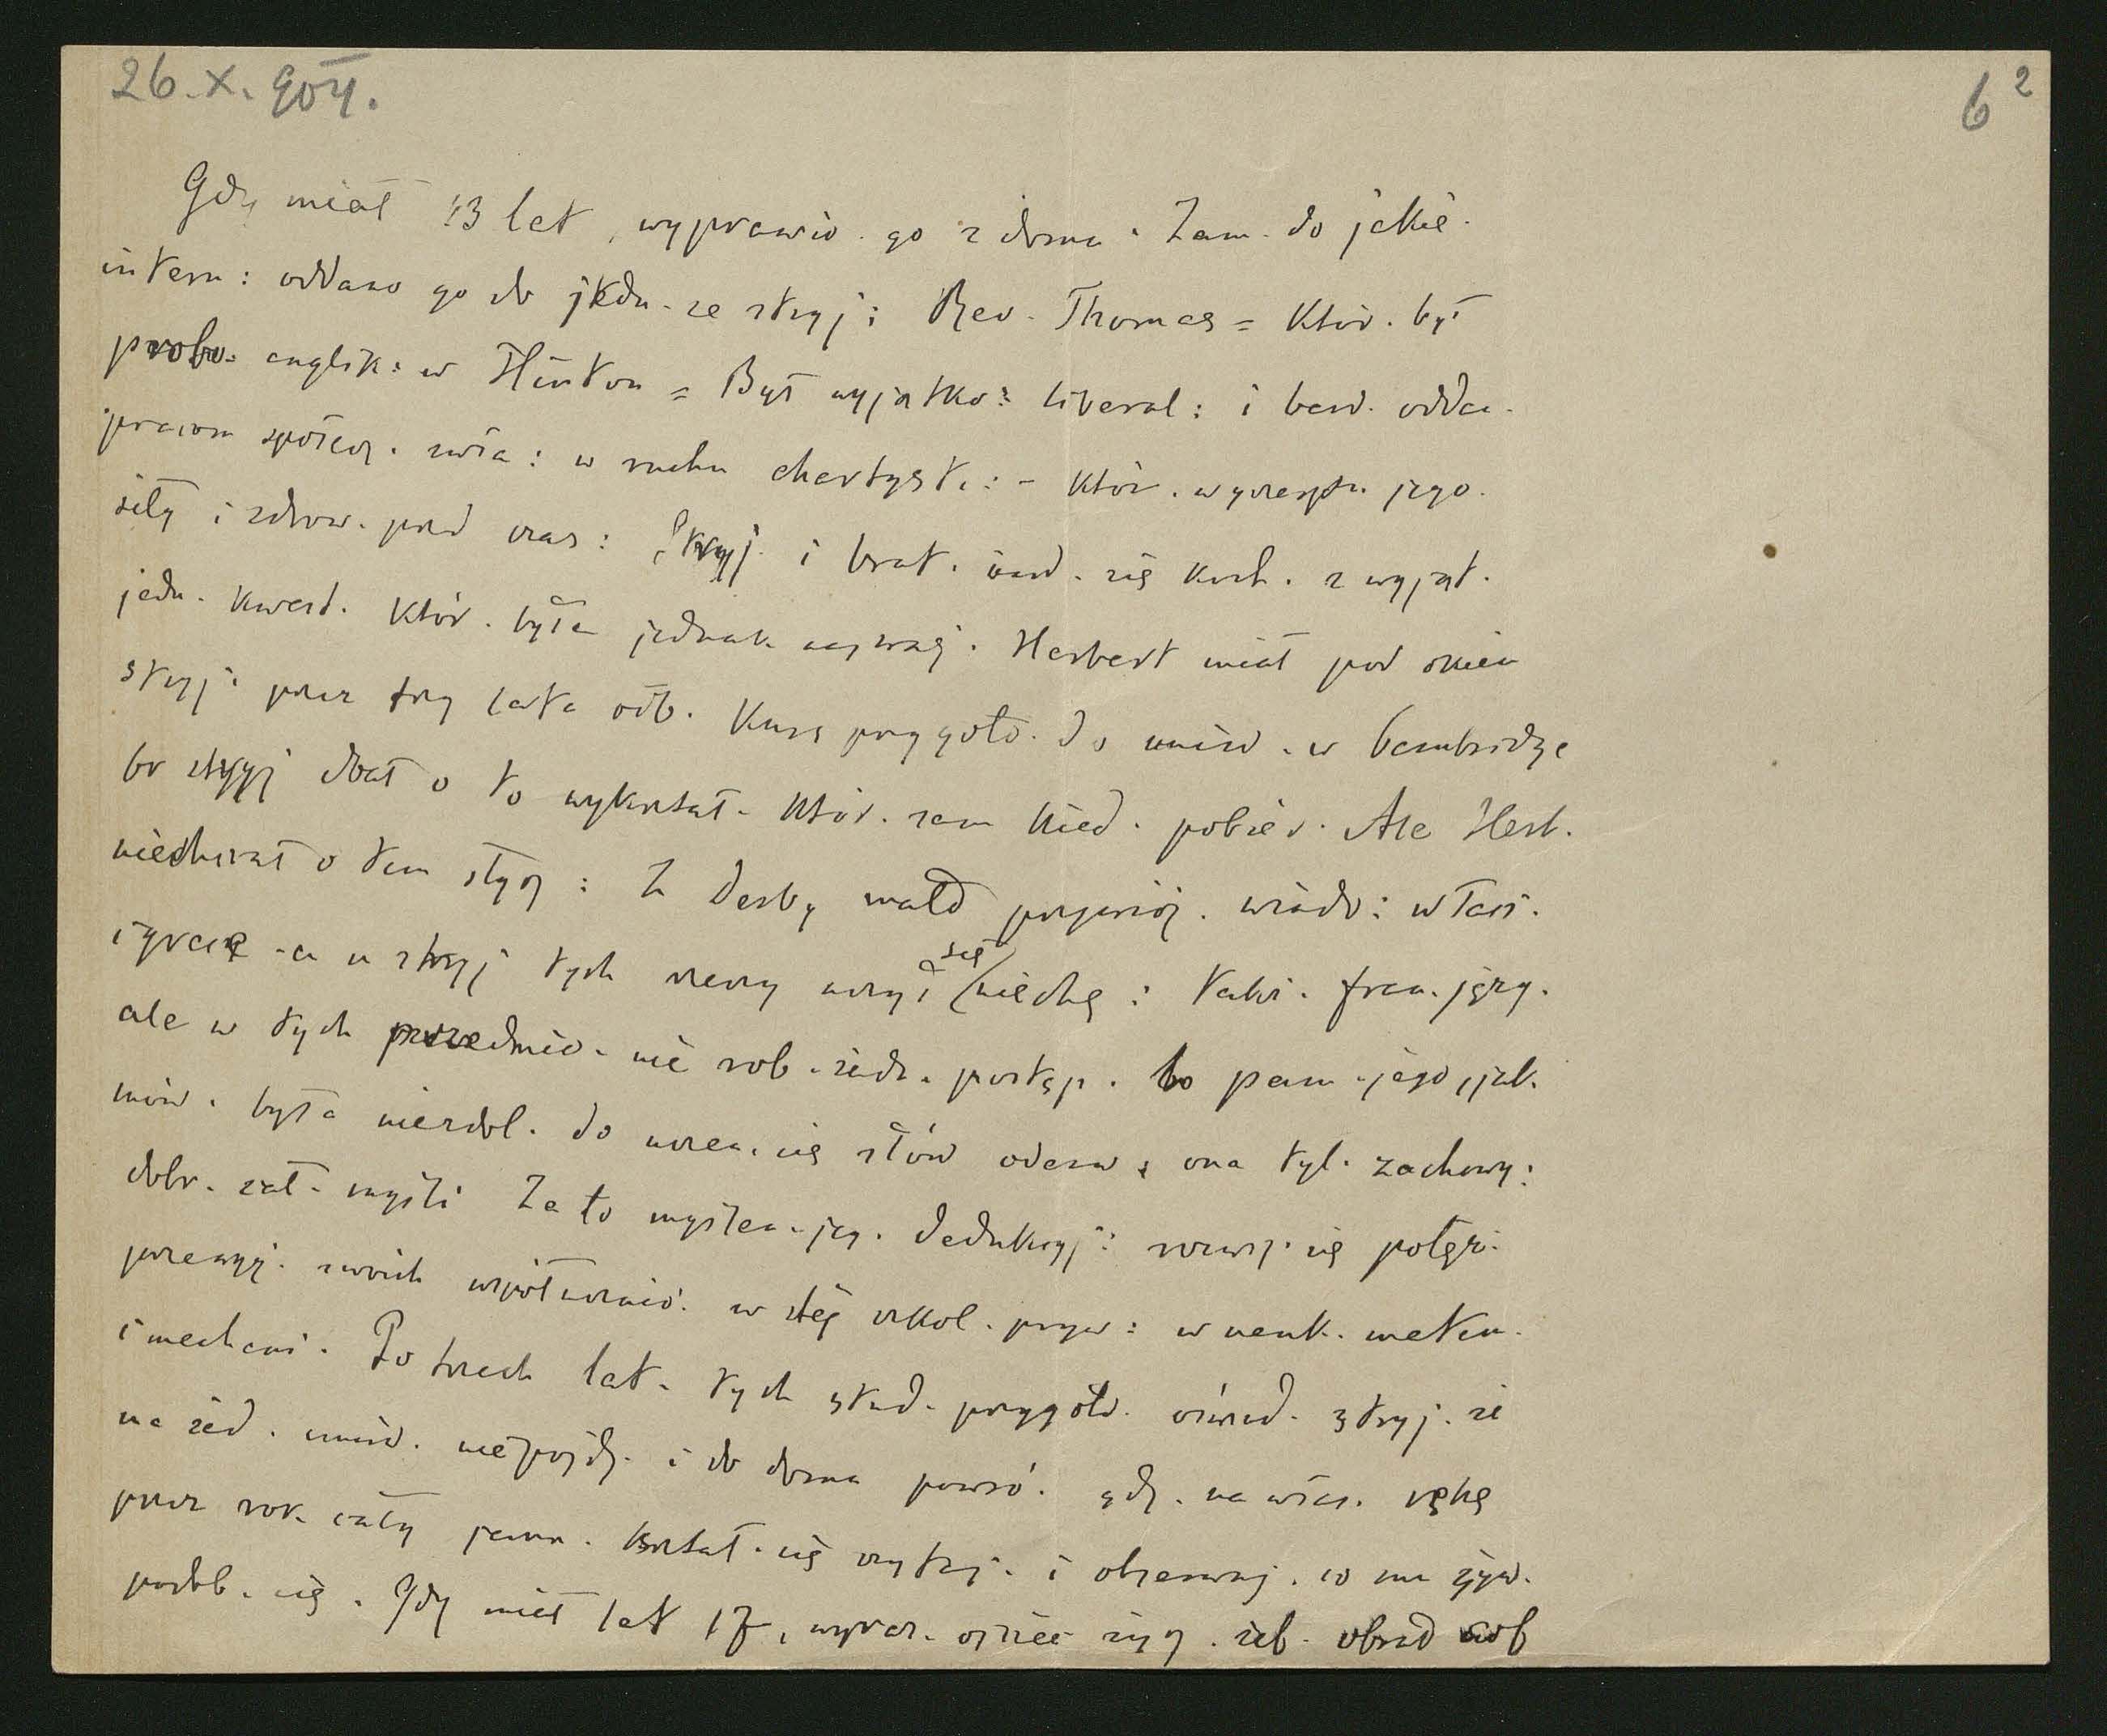 26. X. 904.
6²
Gdy miał 13 lat, wyprawio. go z domu. Zam. do jakie.
intern: oddano go do jedn. ze stryj: Rev. Thomas = Któr. był
probo. anglik: w Hinton = Był wyjątko: liberal: i bard. odda.
pracom społecz. zwła: w ruchu chartyst.: - któr. wyczerpa. jego.
siły i zdrow. przed czas: Stryj. i brat. bard. się koch. z wyjąt.
jedn. kwest. któr. była jednak najważ. Herbert miał pod okiem
stryj. przez trzy lata odb. Kurs przygoto. do uniw. w Cambridge
bo stryj dbał o to wykształ. któr. sam kied. pobier. Ale Herb.
niechciał o tem słysz: Z Derby mało przywióz. wiado: w łaci.
i grece - a u stryj tych rzeczy uczyć się niechę: takż. fran. języ.
ale w tych przedmio. nie rob. żadn. postęp. bo pam. jego, jak.
mów. była niezdol. do ucze. się słów oderw; ona tyl. zachowy:
dobr. cał. myśli Za to myślen. jeg. dedukcyj: rozwij. się potęż.
przewyż. swoich współucznió. w tej szkol. pryw: w nauk. matem.
i mechani. Po trzech lat. tych stud. przygoto. oświad. stryj. że
na żad. uniw. nie pójdz. i do domu powró. gdz. na włas. rękę
przez rok. cały kształ. się czytaj. i obserwuj. co mu żyw.
podob. się. Gdy miał lat 17, wyraz. ojciec życz. żeb. obrał sob